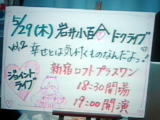 5/29(木) 岩井小百合トークライブ
vol.2 幸せとは気付くものなんだよっ!
ジョイント
ライブ
新宿ロフトプラスワン
18:30開場
19:00開演